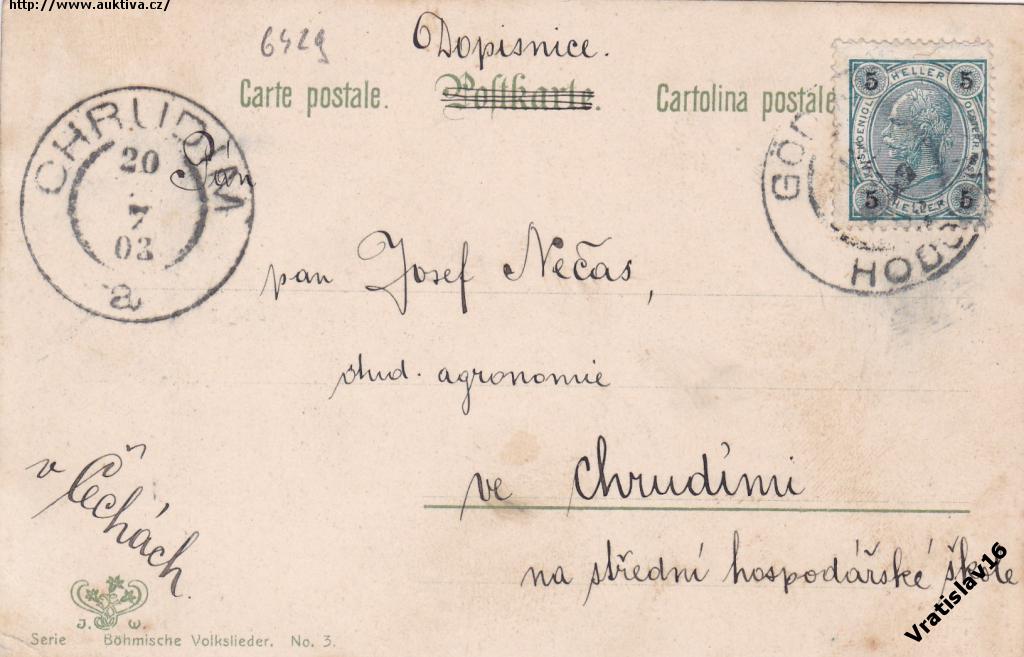 http://www.auktiva.cz/
6429
Dopisnice.
Carte postale. Postkarte. Cartolina postale
CHRUDIM
20
7
03
a
5 HELLER 5
5 HELLER 5
GÖD
HODO
Pán
pan Josef Nečas,
stud. agronomie
ve Chrudimi
na střední hospodářské škole
v Čechách
J. W.
Serie Böhmische Volkslieder. No. 3.
Vratislav16